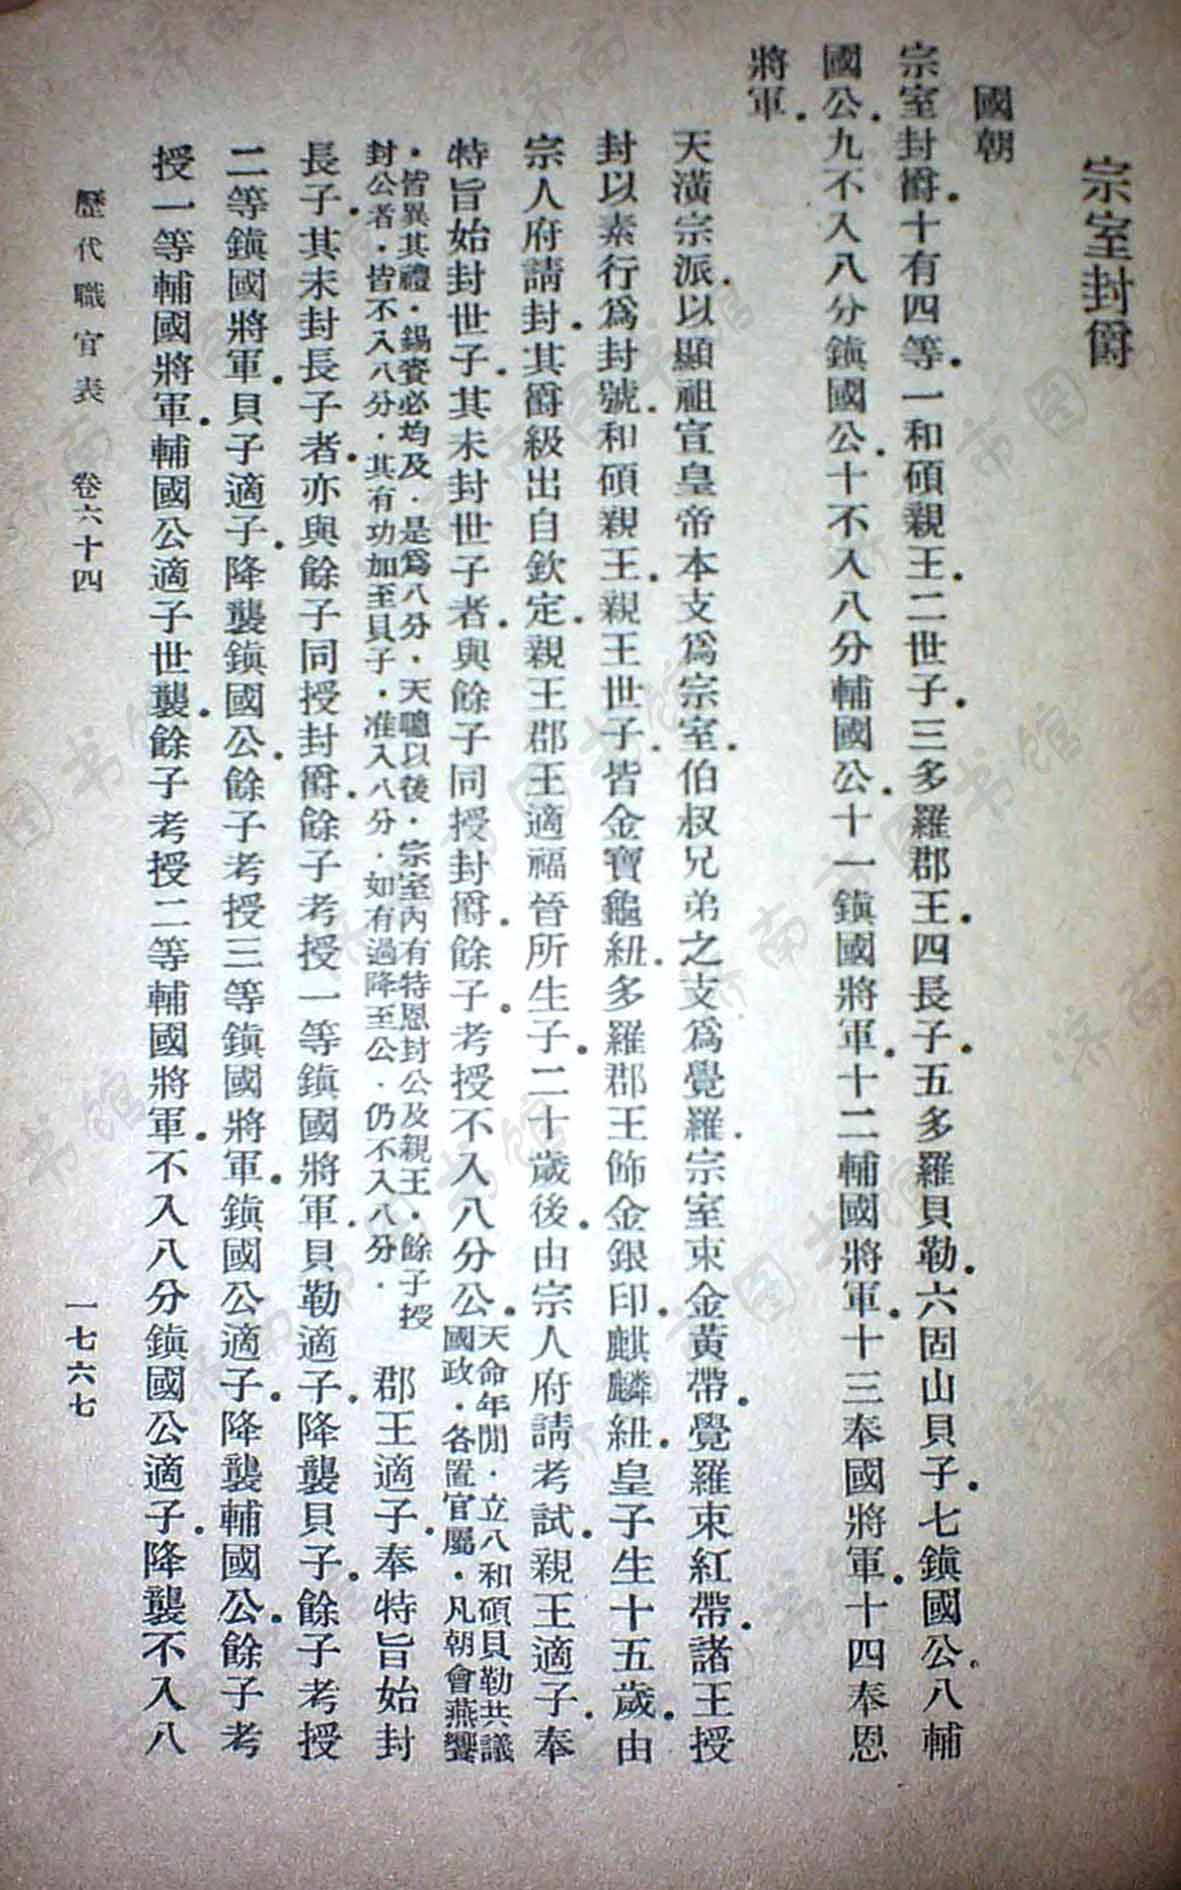 宗室封爵
國朝
宗室封爵十有四等一和碩親王二世子三多羅郡王四長子五多羅貝勒六固山貝子七鎭國公八輔
國公九不入八分鎭國公十不入八分輔國公十一鎭國將軍十二輔國將軍十三奉國將軍十四奉恩
將軍
天潢宗派以顯祖宣皇帝本支爲宗室伯叔兄弟之支爲覺羅宗室束金黃帶覺羅束紅帶諸王授
封以素行爲封號和碩親王親王世子皆金寶龜紐多羅郡王飾金銀印麒麟紐皇子生十五歲由
宗人府請封其爵級出自欽定親王郡王適福晉所生子二十歲後由宗人府請考試親王適子奉
特旨始封世子其未封世子者與餘子同授封爵餘子考授不入八分公天命年閒．立八和碩貝勒共議
國政．各置官屬．凡朝會燕饗
．皆異其禮．錫賚必均及．是爲八分．天聰以後．宗室內有特恩封公及親王．餘子授
封公者．皆不入八分．其有功加至貝子．准入八分．如有過降至公．仍不入八分．
郡王適子奉特旨始封
長子其未封長子者亦與餘子同授封爵餘子考授一等鎭國將軍貝勒適子降襲貝子餘子考授
二等鎭國將軍貝子適子降襲鎭國公餘子考授三等鎭國將軍鎭國公適子降襲輔國公餘子考
授一等輔國將軍輔國公適子世襲餘子考授二等輔國將軍不入八分鎭國公適子降襲不入八
歷代職官表 卷六十四
一七六七
济南市图书馆